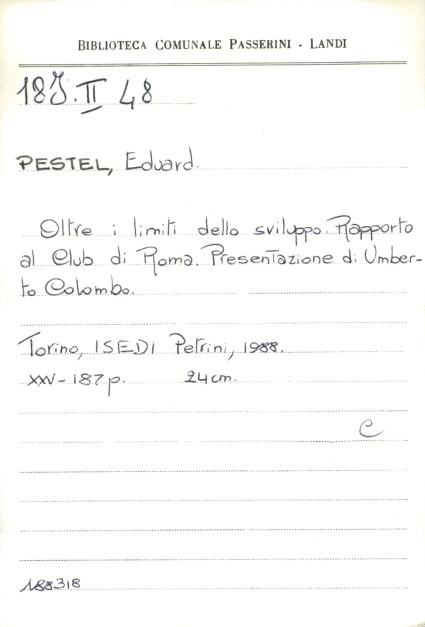 BIBLIOTECA COMUNALE PASSERINI - LANDI
18J.II 48
PESTEL, Eduard.
Oltre i limiti dello sviluppo. Rapporto
al Club di Roma. Presentazione di Umber-
to Colombo.
Torino, ISEDI Petrini, 1988.
XXV-187 p. 24 cm.
C
188318